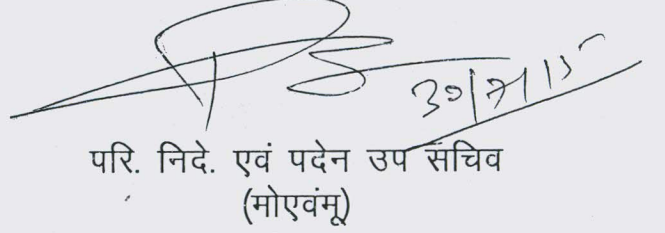 30/7/15
परि. निदे. एवं पदेन उप सचिव
(मोएवंमू)